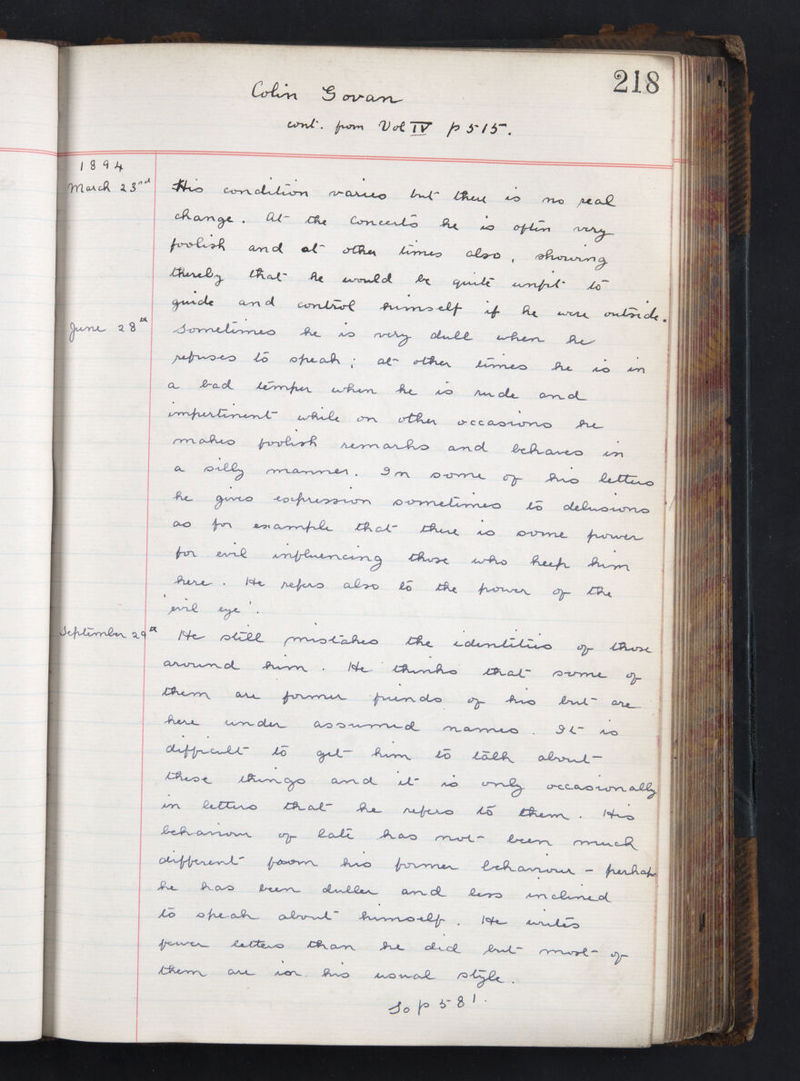 218
Colin Govan
cont. from Vol IV p 515.
1894
March 23rd His condition varies but there is no real
change. At the concerts he is often very
foolish and at other times also, showing
thereby that he would be quite unfit to
guide and control himself if he were outside.
June 28th Sometimes he is very dull when he
refuses to speak; at other times he is in
a bad temper when he is rude and
impertinent while on other occasions he
makes foolish remarks and behaves in
a silly manner. In some of his letters
he gives expression sometimes to delusions
as for example that there is some power
for evil influencing those who keep him
here. He refers also to the power of the
'evil eye'.
September 29th He still mistakes the identities of those
around him. He thinks that some of
them are former friends of his but are
here under assumed names. It is
difficult to get him to talk about
these things and it is only occasionally
in letters that he refers to them. His
behaviour of late has not been much
different from his former behaviour - perhaps
he has been duller and less inclined
to speak about himself. He writes
fewer letters than he did but most of
them are in his usual style.
To p 581.